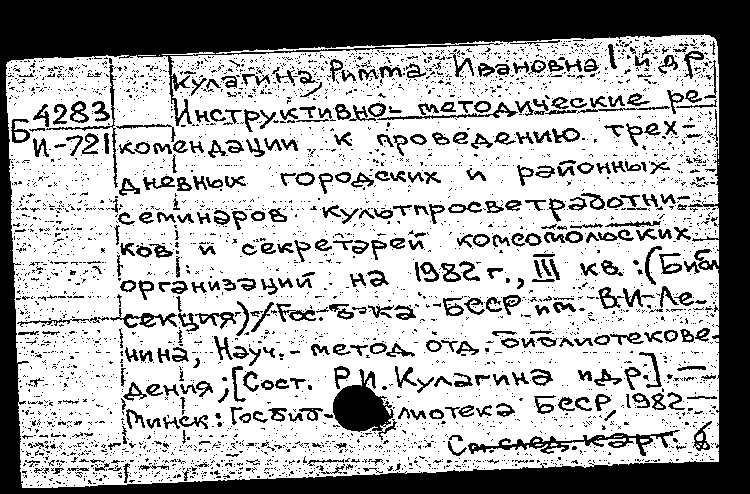 Кулагина, Римма Ивановна и др
Б 4283/И-721
Инструктивно-методические ре-
комендации к проведению трех-
дневных городских и районных
семинаров культпросветработни-
ков и секретарей комсомольских
организаций на 1982 г., III кв.: (Библ
секция) / Гос. б-ка БССР им. В.И. Ле-
нина, Науч.-метод. отд. библиотекове-
дения; [Сост. Р.И. Кулагина и др.]. —
Минск: Госбиб-лиотека БССР, 1982.
См. след. карт.